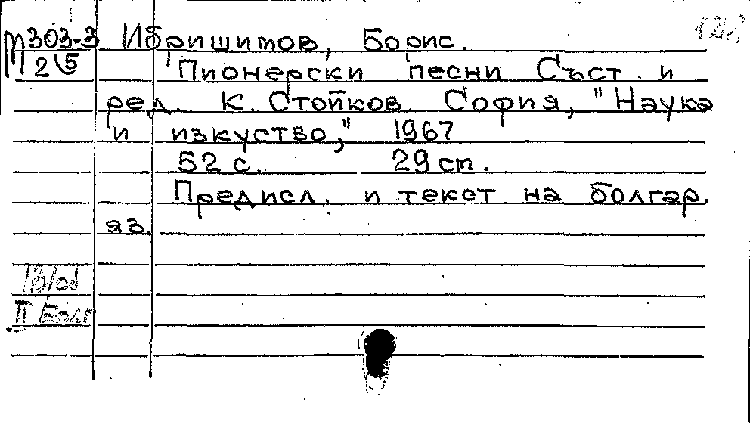 П303-3 Ибришимов, Борис.
2\5 Пионерски песни Съст. и
ред. К. Стойков. София, "Наука
и изкуство," 1967
52 с. 29 сп.
Предисл. и текст на болгар.
яз.